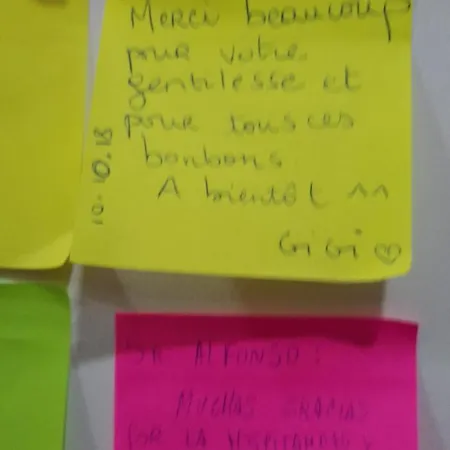 Merci beaucoup
pour votre
gentilesse et
pour tous ces
bonbons
A bientôt ^^
GiGi ♡
10.10.18
SR. ALFONSO:
MUCHAS GRACIAS
POR LA HOSPITALIDAD Y